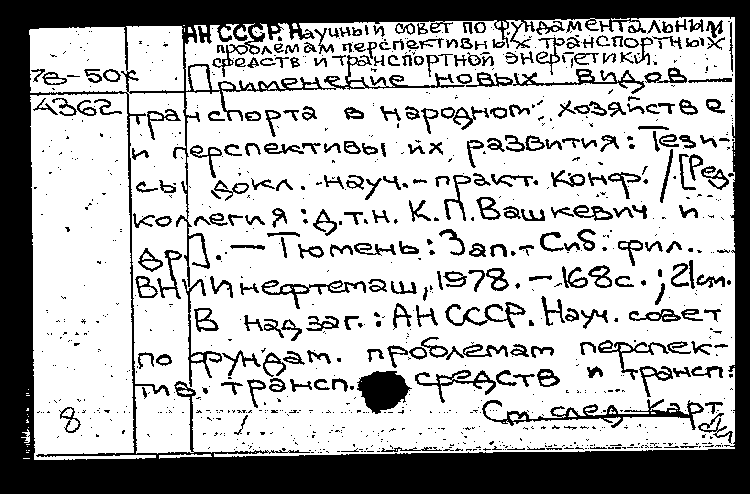 АН СССР. Научный совет по фундаментальным
проблемам перспективных транспортных
средств и транспортной энергетики.
78-50к Применение новых видов
4362 транспорта в народном хозяйстве
и перспективы их развития: Тези-
сы докл. науч.-практ. конф. / [Ред-
коллегия: д.т.н. К.П. Вашкевич и
др.]. — Тюмень: Зап.-Сиб. фил.
ВНИИнефтемаш, 1978. - 168с.; 21см.
В надзаг.: АН СССР. Науч. совет
по фундам. проблемам перспек-
тив. трансп. средств и трансп.
8 См. след. карт